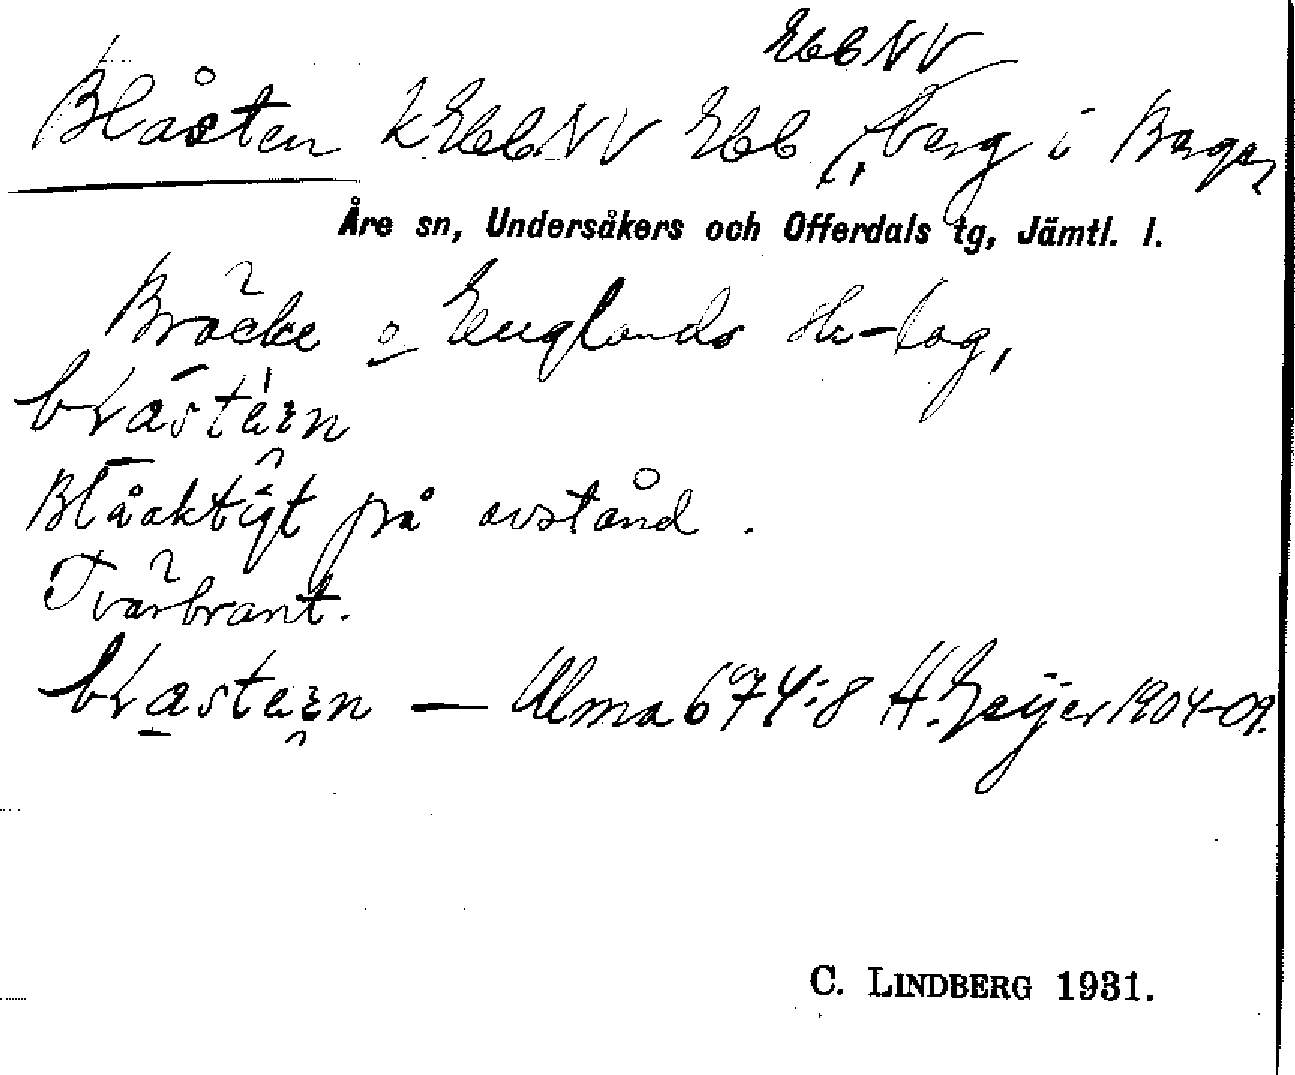 EbbNV
Blåsten k EbbNV Ebb, berg i Bergen,
Åre sn, Undersåkers och Offerdals tg, Jämtl. l.
Bräcke o Englands sk-lag,
Blåaktigt på avstånd.
Tvärbrant.
— Alma 674:8 H. Geijer 1904-09.
C. LINDBERG 1931.